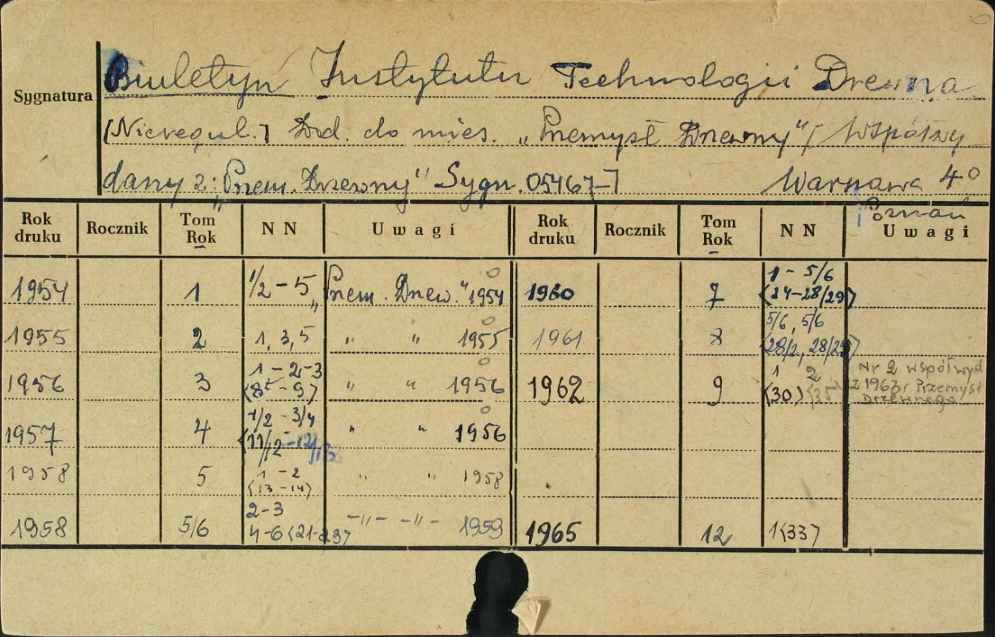 Sygnatura
Biuletyn Instytutu Technologii Drewna
[Nieregul.] Dod. do mies. „Przemysł Drzewny” / Wspólny
dany z: „Przem. Drzewny” Sygn. 05467-] Warszawa 4°
i Poznań
Rok druku Rocznik Tom Rok NN Uwagi Rok druku Rocznik Tom Rok NN Uwagi
1954 1 1/2-5 „Przem. Drzew.” 1954 1960 7 1-5/6 (24-28/29)
1955 2 1, 3, 5 " " 1955 1961 8 5/6, 5/6
1956 3 1-2-3 (8-9) " " 1956 1962 9 1 2 (30) Nr 2 współwyd z 1963 r Przemysł Drzewnego
1957 4 1/2-3/4 " " 1956
1958 5 1-2 (13-14) " " 1958
1958 5/6 2-3 4-6 -"- -"- 1959 1965 12 1(33)